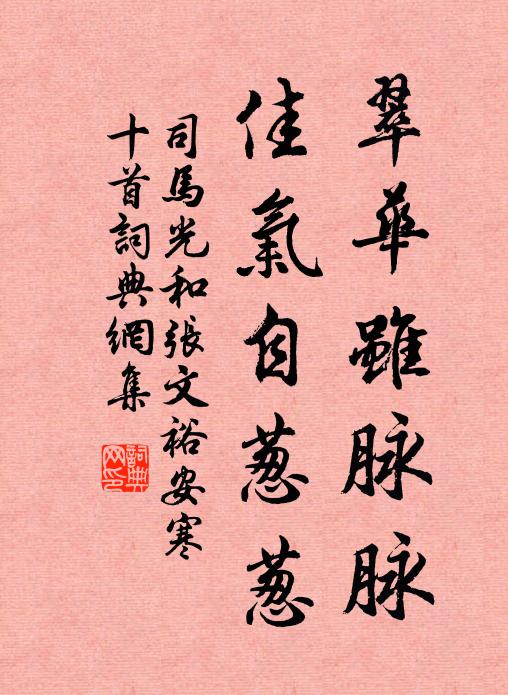 翠華雖脉脉
佳氣自葱葱
司馬光和張文裕安寒
十首詞典網集
詞典网印